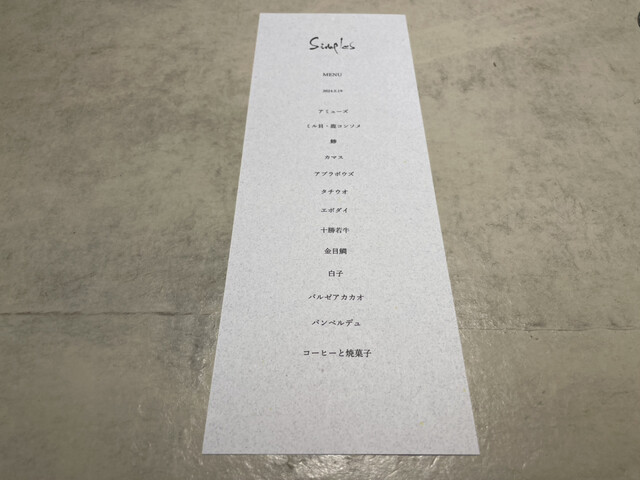 Simples
MENU
アミューズ
カマス
アブラボウズ
タチウオ
エボダイ
十勝若牛
金目鯛
白子
バルゼアカカオ
パンペルデュ
コーヒーと焼菓子